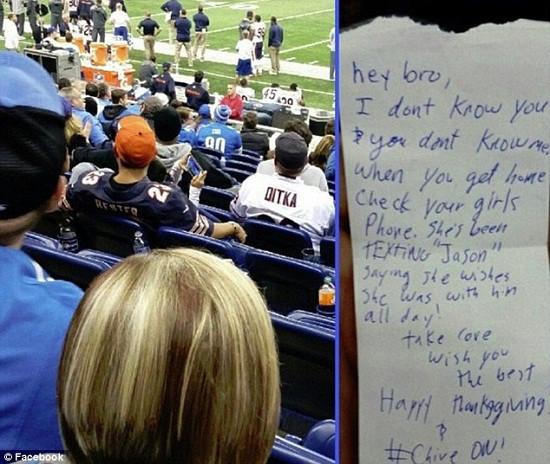 45
29
90
HESTER
23
DITKA
hey bro,
I dont know you
& you dont know me
when you get home
Check your girls
Phone. She's been
TEXTING "Jason"
Saying she wishes
She was with him
all day!
take care
wish you
the best
Happy thanksgiving
&
#Chive ON!
© Facebook